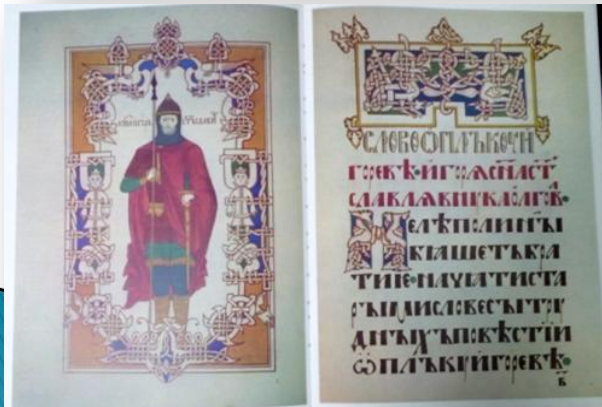 СЛОВО Ѡ ПЛЪКОУ И
ГОРЕВѢ·ИГОРѦ СН҃А СТ҃
СЛАВЛѦ ВНꙊКА ОЛГОВ·
НЕ ЛѢПО ЛИ НЫ
БѦШЕТЬ БРА
ТИЕ·НАЧАТИ СТА
РЫМИ СЛОВЕСЫ ТРꙊ
ДНЫХЪ ПОВѢСТІИ
Ѡ ПЛЪКꙊ ИГОРЕВѢ·